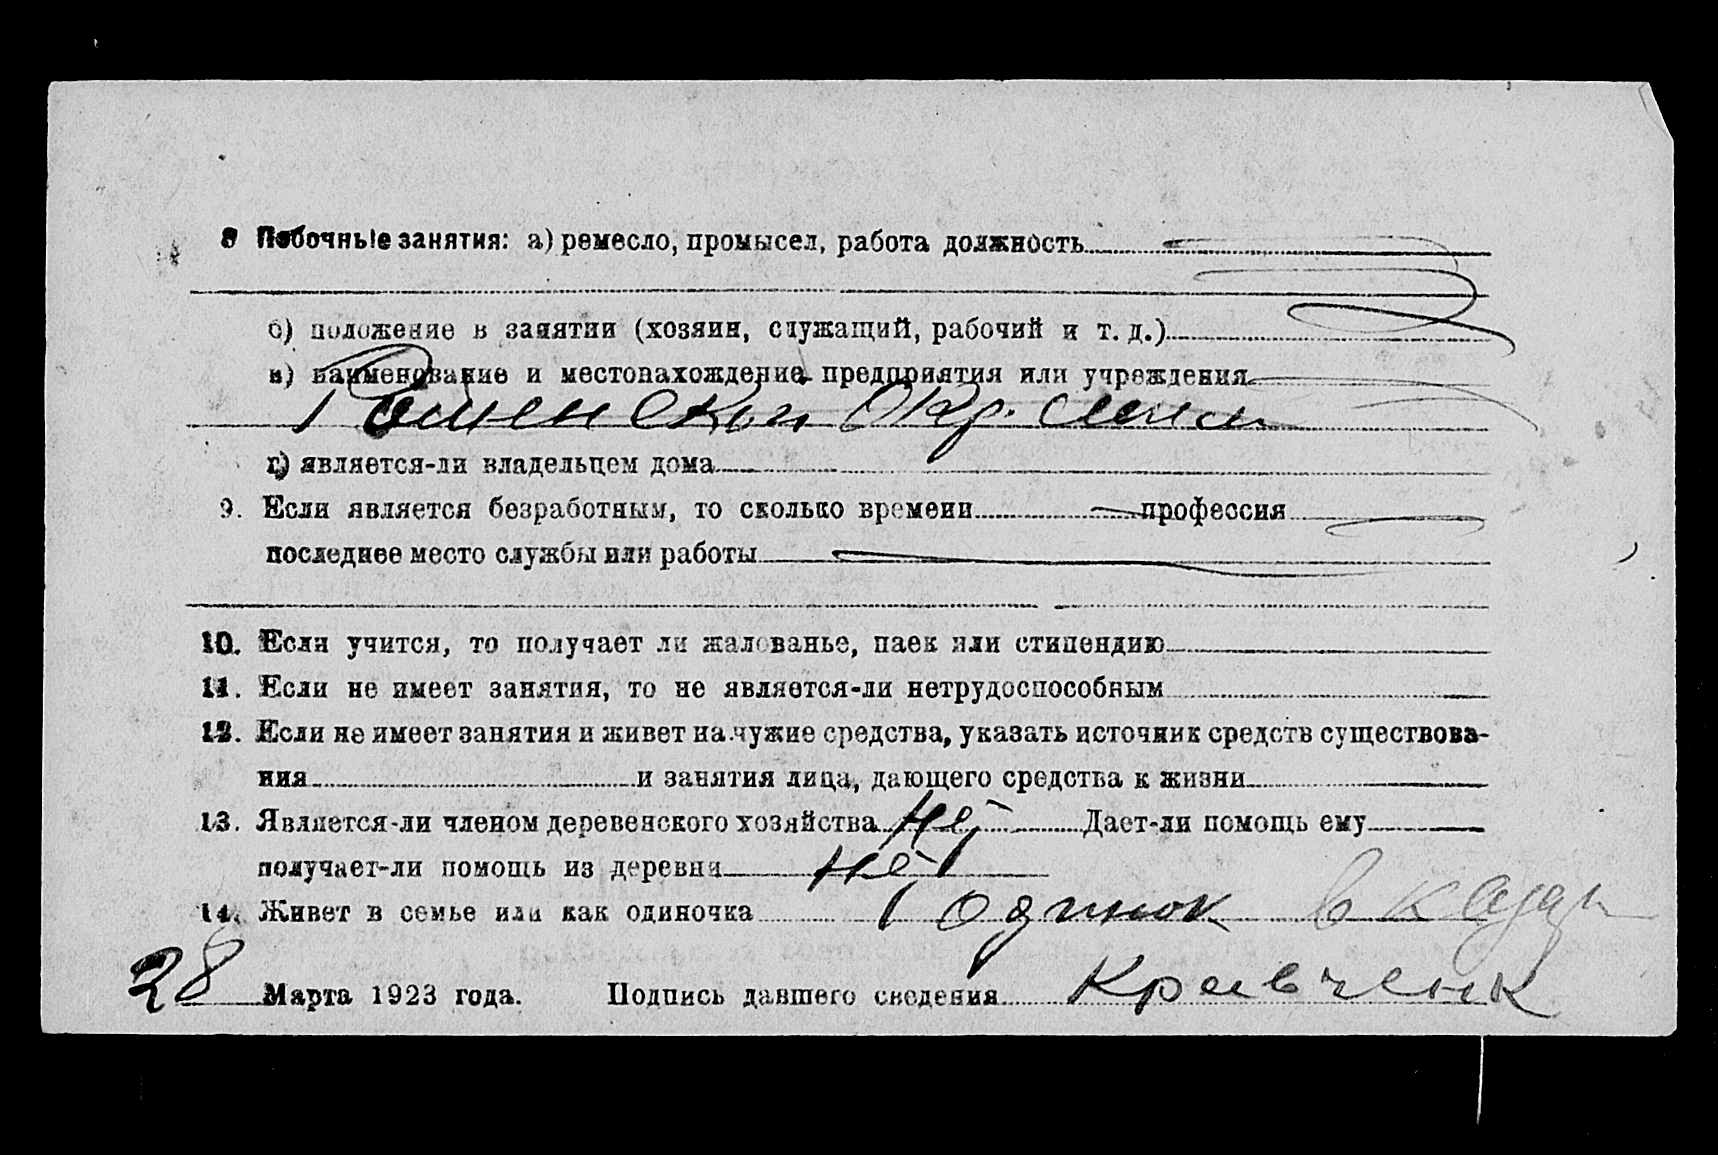 8 Побочные занятия: а) ремесло, промысел, работа должность
б) положение в занятии (хозяин, служащий, рабочий и т. д.)
в) наименование и местонахождение предприятия или учреждения
Роменский Окр.
г) является-ли владельцем дома
9. Если является безработным, то сколько времени профессия
последнее место службы или работы
10. Если учится, то получает ли жалованье, паек или стипендию
11. Если не имеет занятия, то не является-ли нетрудоспособным
12. Если не имеет занятия и живет на чужие средства, указать источник средств существова-
ния и занятия лица, дающего средства к жизни
13. Является-ли членом деревенского хозяйства нет Дает-ли помощь ему
получает-ли помощь из деревни нет
14. Живет в семье или как одиночка одинок в
28 Марта 1923 года. Подпись давшего сведения Кравченк